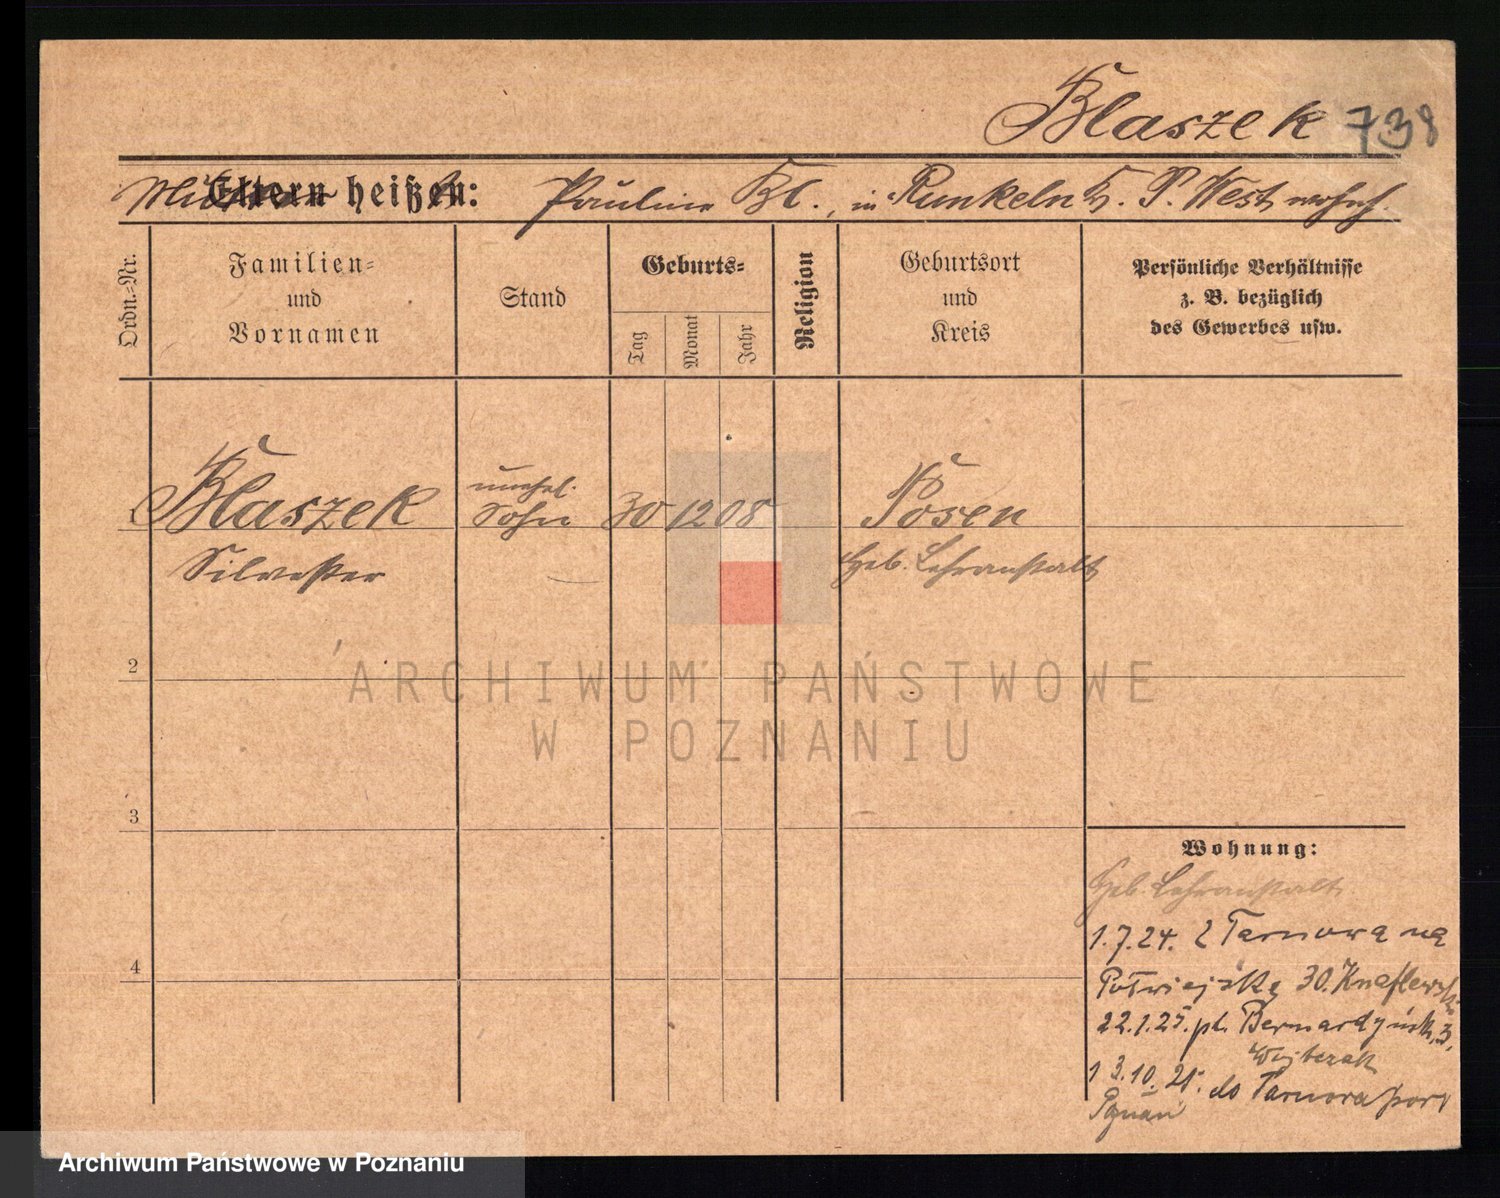 Blaszek 738
Eltern heißen: Pauline Bl., in Runkeln K. P. West wohnh.
Ordn.-Nr.
Familien-
und
Vornamen
Stand
Geburts-
Tag
Monat
Jahr
Religion
Geburtsort
und
Kreis
Persönliche Verhältnisse
z. B. bezüglich
des Gewerbes usw.
1 Blaszek
Silvester
unehel.
Sohn
30 12 08
Posen
Heb. Lehranstalt
2
3
4
Wohnung:
Heb. Lehranstalt
1.7.24. z Tarnowa na
30. Knaflewski
22.1.25. pl. Bernardyński 3,
Wojtczak
13.10.25. do Tarnowa pow
Poznań
ARCHIWUM PAŃSTWOWE
W POZNANIU
Archiwum Państwowe w Poznaniu